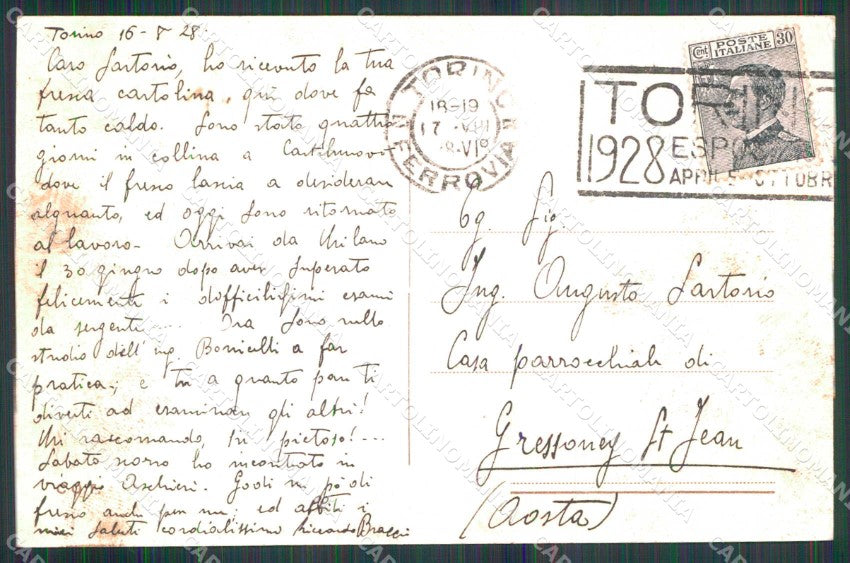 Torino 16-8-28.
Caro Sartorio, ho ricevuto la tua
fresca cartolina, qui dove fa
tanto caldo. Sono stato quattro
giorni in collina a
dove il fresco lascia a desiderare
alquanto, ed oggi sono ritornato
al lavoro. Arrivai da Milano
il 30 giugno dopo aver superato
felicemente i difficilissimi esami
da sergente.... Ora sono nello
studio dell'ing. a far
pratica; e tu a quanto pare ti
diverti ad esaminare gli altri!
Mi raccomando, sii pietoso!...
Sabato scorso ho incontrato in
viaggio Aschieri. Godi un po' di
fresco anche per me; ed abbiti i
miei saluti cordialissimi Riccardo
TORINO
FERROVIA
18-19
17 VIII
28.VIº
TORINO
1928 ESPOS
APRILE-OTTOBR
Cent POSTE 30
ITALIANE
Eg. Sig.
Ing. Augusto Sartorio
Casa parrocchiale di
Gressoney St Jean
(Aosta)
CARTOLINOMANIA